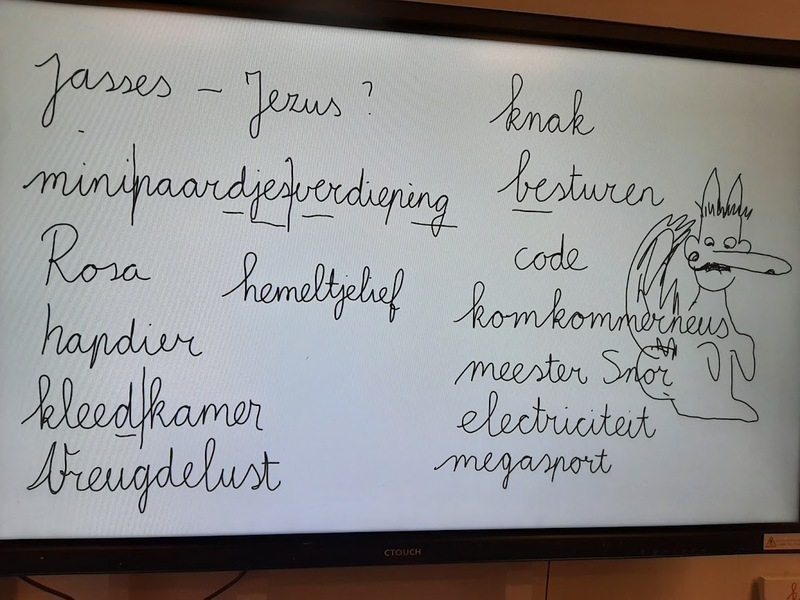 Jasses – Jezus?
minipaardjesverdieping
Rosa
hemeltjelief
hapdier
kleedkamer
Vreugdelust
knak
besturen
code
komkommerneus
meester Snor
electriciteit
megasport
CTOUCH